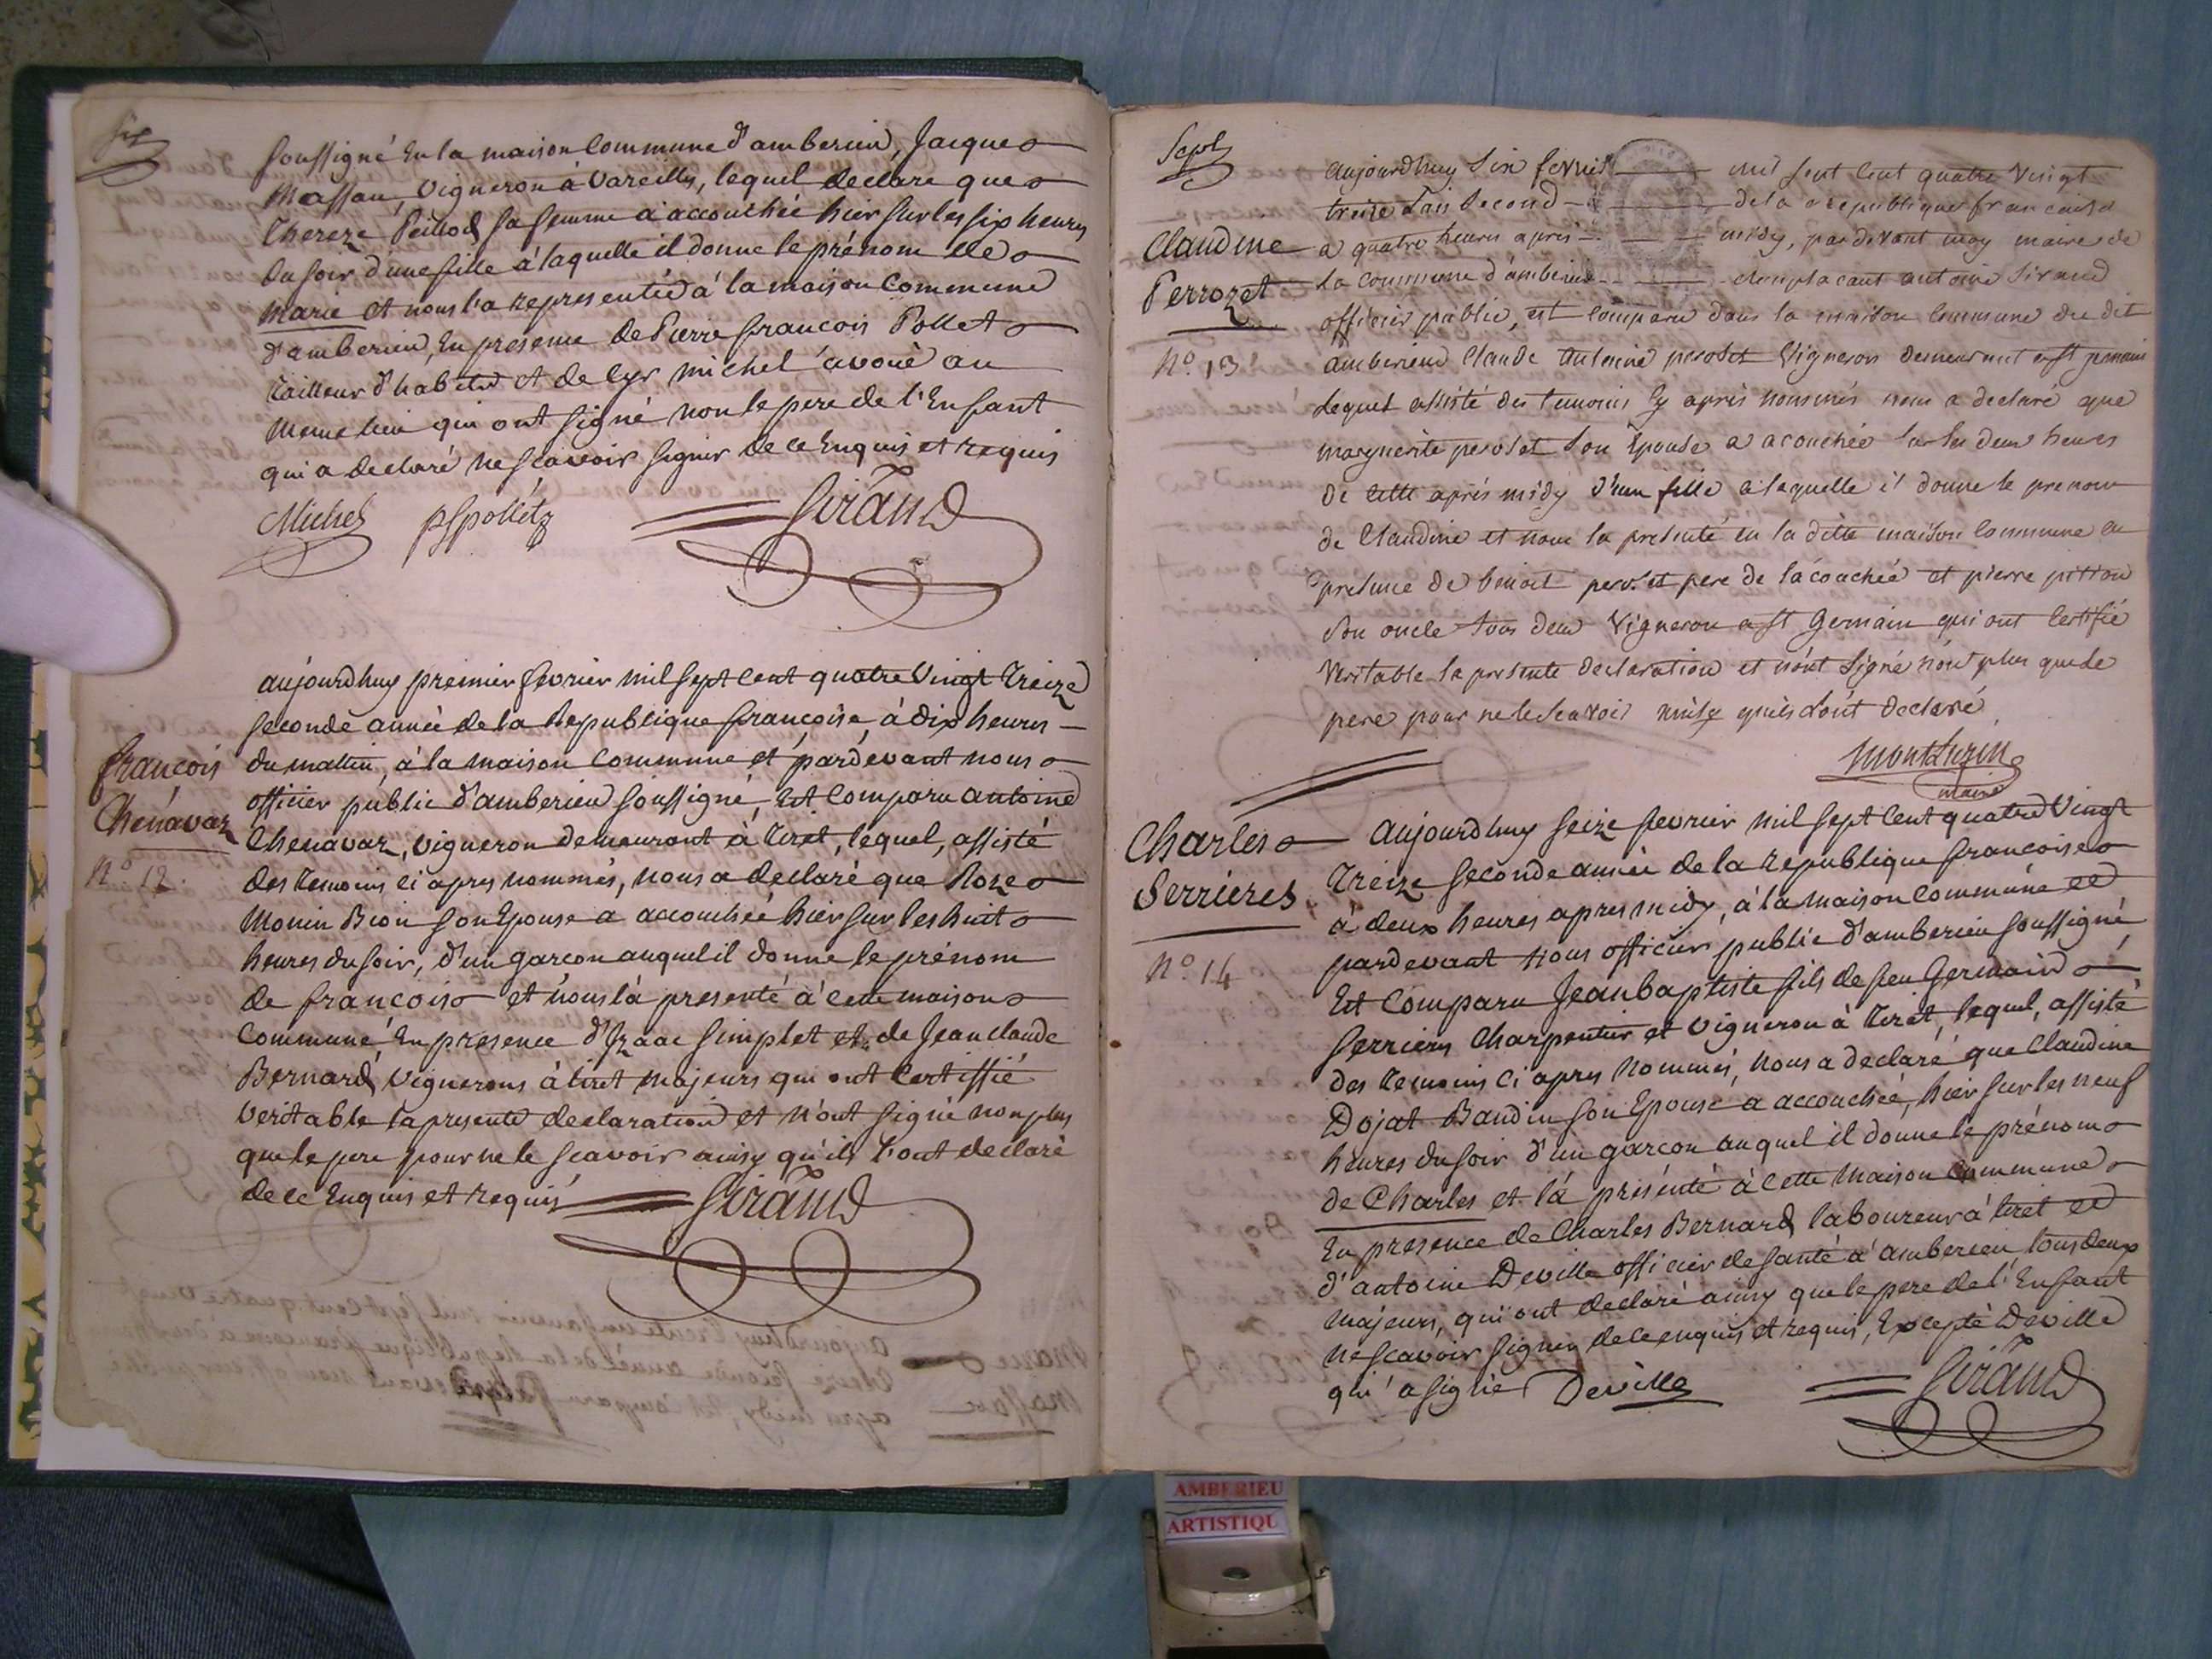 six
soussigné En la maison Commune d'amberieu, Jacques
Massou, vigneron à Vareilles, lequel declare que
Thereze Peillod sa femme a accouchée hier sur les six heures
du soir d'une fille à laquelle il donne le prénom de
Marie et nous l'a representée à la maison Commune
d'amberieu, En presence de Pierre francois Pollet
tailleur d'habits et de Cyr michel avoué au
meme lieu qui ont signé non le pere de l'Enfant
qui a declaré ne scavoir signer de ce Enquis et requis
Michel pfpolletz Sirand
aujourdhuy premier fevrier mil sept cent quatre Vingt Treize
seconde année de la Republique françoise, à dix heures
francois
du mattin, à la maison Commune et pardevant nous
Chenavaz
officier public d'amberieu soussigné, Est Comparu antoine
Chenavaz, vigneron demeurant à Tiret, lequel, assisté
No 12.
des temoins ci apres nommés, nous a declaré que Roze
Monin Bion son Epouse a accouchée hier sur les huit
heures du soir, d'un garcon auquel il donne le prénom
de francois et nous l'a presenté à cette maison
Commune, En presence d'Izaac Simplet et de Jean claude
Bernard, vignerons à tiret majeurs qui ont Certiffié
veritable la presente declaration et n'ont signé non plus
que le pere pour ne le scavoir ainsy qu'ils l'ont declaré
de ce Enquis et requis Sirand
Sept
aujourdhuy six fevrier mil sept cent quatre vingt
treize l'an second de la republique francaise
Claudine
a quatre heures apres midy, pardevant moy maire de
Perrozet
la commune d'amberieu remplacant antoine Sirand
officier public, est comparu dans la maison commune du dit
No 13
amberieu Claude Antoine peroset Vigneron demeurant a st germain
lequel assisté des temoins cy après nommés nous a declaré que
marguerite peroset son Epouse a acouchée sur les deux heures
de cette après midy d'une fille a laquelle il donne le prenom
de Claudine et nous la presenté en la ditte maison commune en
presence de benoit peroset pere de lacouchée et pierre pittion
son oncle tous deux Vigneron a st Germain qui ont certifié
Veritable la presente declaration et n'ont signé non plus que le
pere pour ne le scavoir ainsy quils lont declaré
maire
Charles
aujourdhuy seize fevrier mil sept cent quatre Vingt
Serrieres
Treize seconde année de la republique francoise
à deux heures apres midy, à la maison Commune et
No 14
pardevant nous officier public d'amberieu soussigné
Est Comparu Jean baptiste fils de feu Germain
Serrieres Charpentier et vigneron à Tiret, lequel, assisté
des temoins ci apres nommés, nous a declaré que Claudine
Dojat Baudin son Epouse a accouchée, hier sur les neuf
heures du soir d'un garcon auquel il donne le prénom
de Charles et l'a présenté à cette maison Commune
En presence de Charles Bernard laboureur à tiret et
d'antoine Deville officier de santé à amberieu tous deux
majeurs, qui ont declaré ainsy que le pere de l'Enfant
ne scavoir signer de ce enquis et requis, Excepté Deville
qui a signé Deville Sirand
AMBERIEU
ARTISTIQU